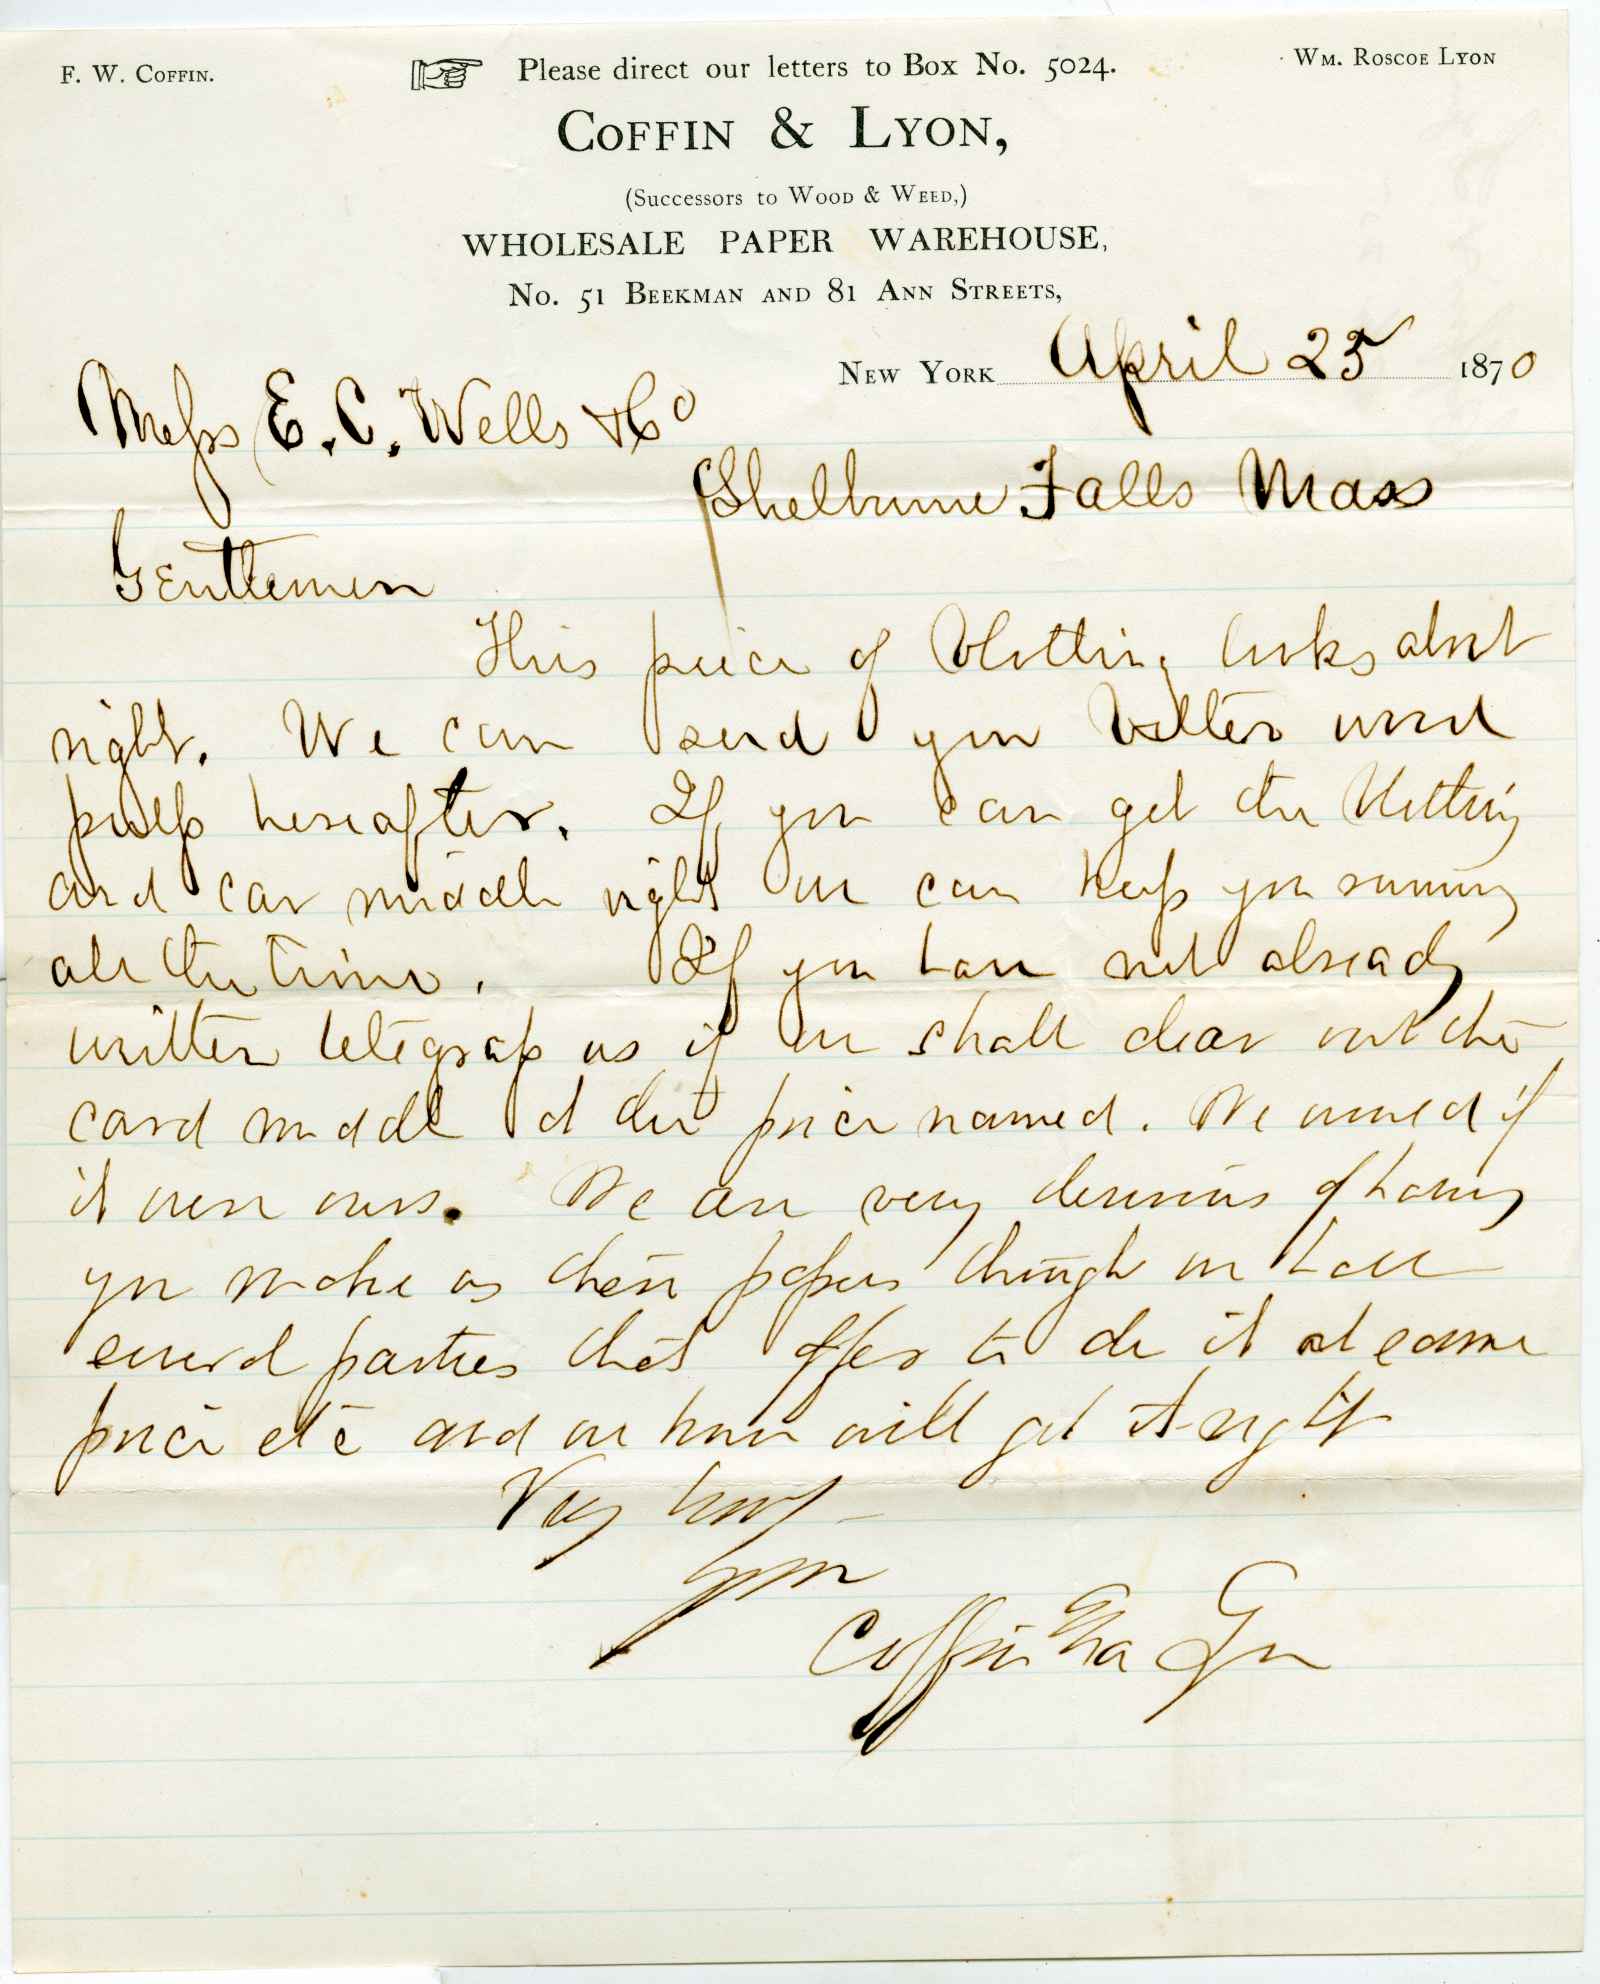 F. W. COFFIN.
Please direct our letters to Box No. 5024.
WM. ROSCOE LYON
COFFIN & LYON,
(Successors to WOOD & WEED,)
WHOLESALE PAPER WAREHOUSE,
No. 51 BEEKMAN AND 81 ANN STREETS,
NEW YORK April 25 1870
Mess E. C. Wells & Co
Shelburne Falls Mass
Gentlemen
This piece of Blotting looks about
right. We can send you better wood
pulp hereafter. If you can get the Blotting
and car middle right we can keep you running
all the time. If you have not already
written telegraph us if we shall clear out the
card middle at the price named. We would if
it were ours. We are very desirous of having
you make us these papers though we have
several parties that offer to do it at same
price etc and we know will get it right
Very truly
Yours
Coffin & Lyon